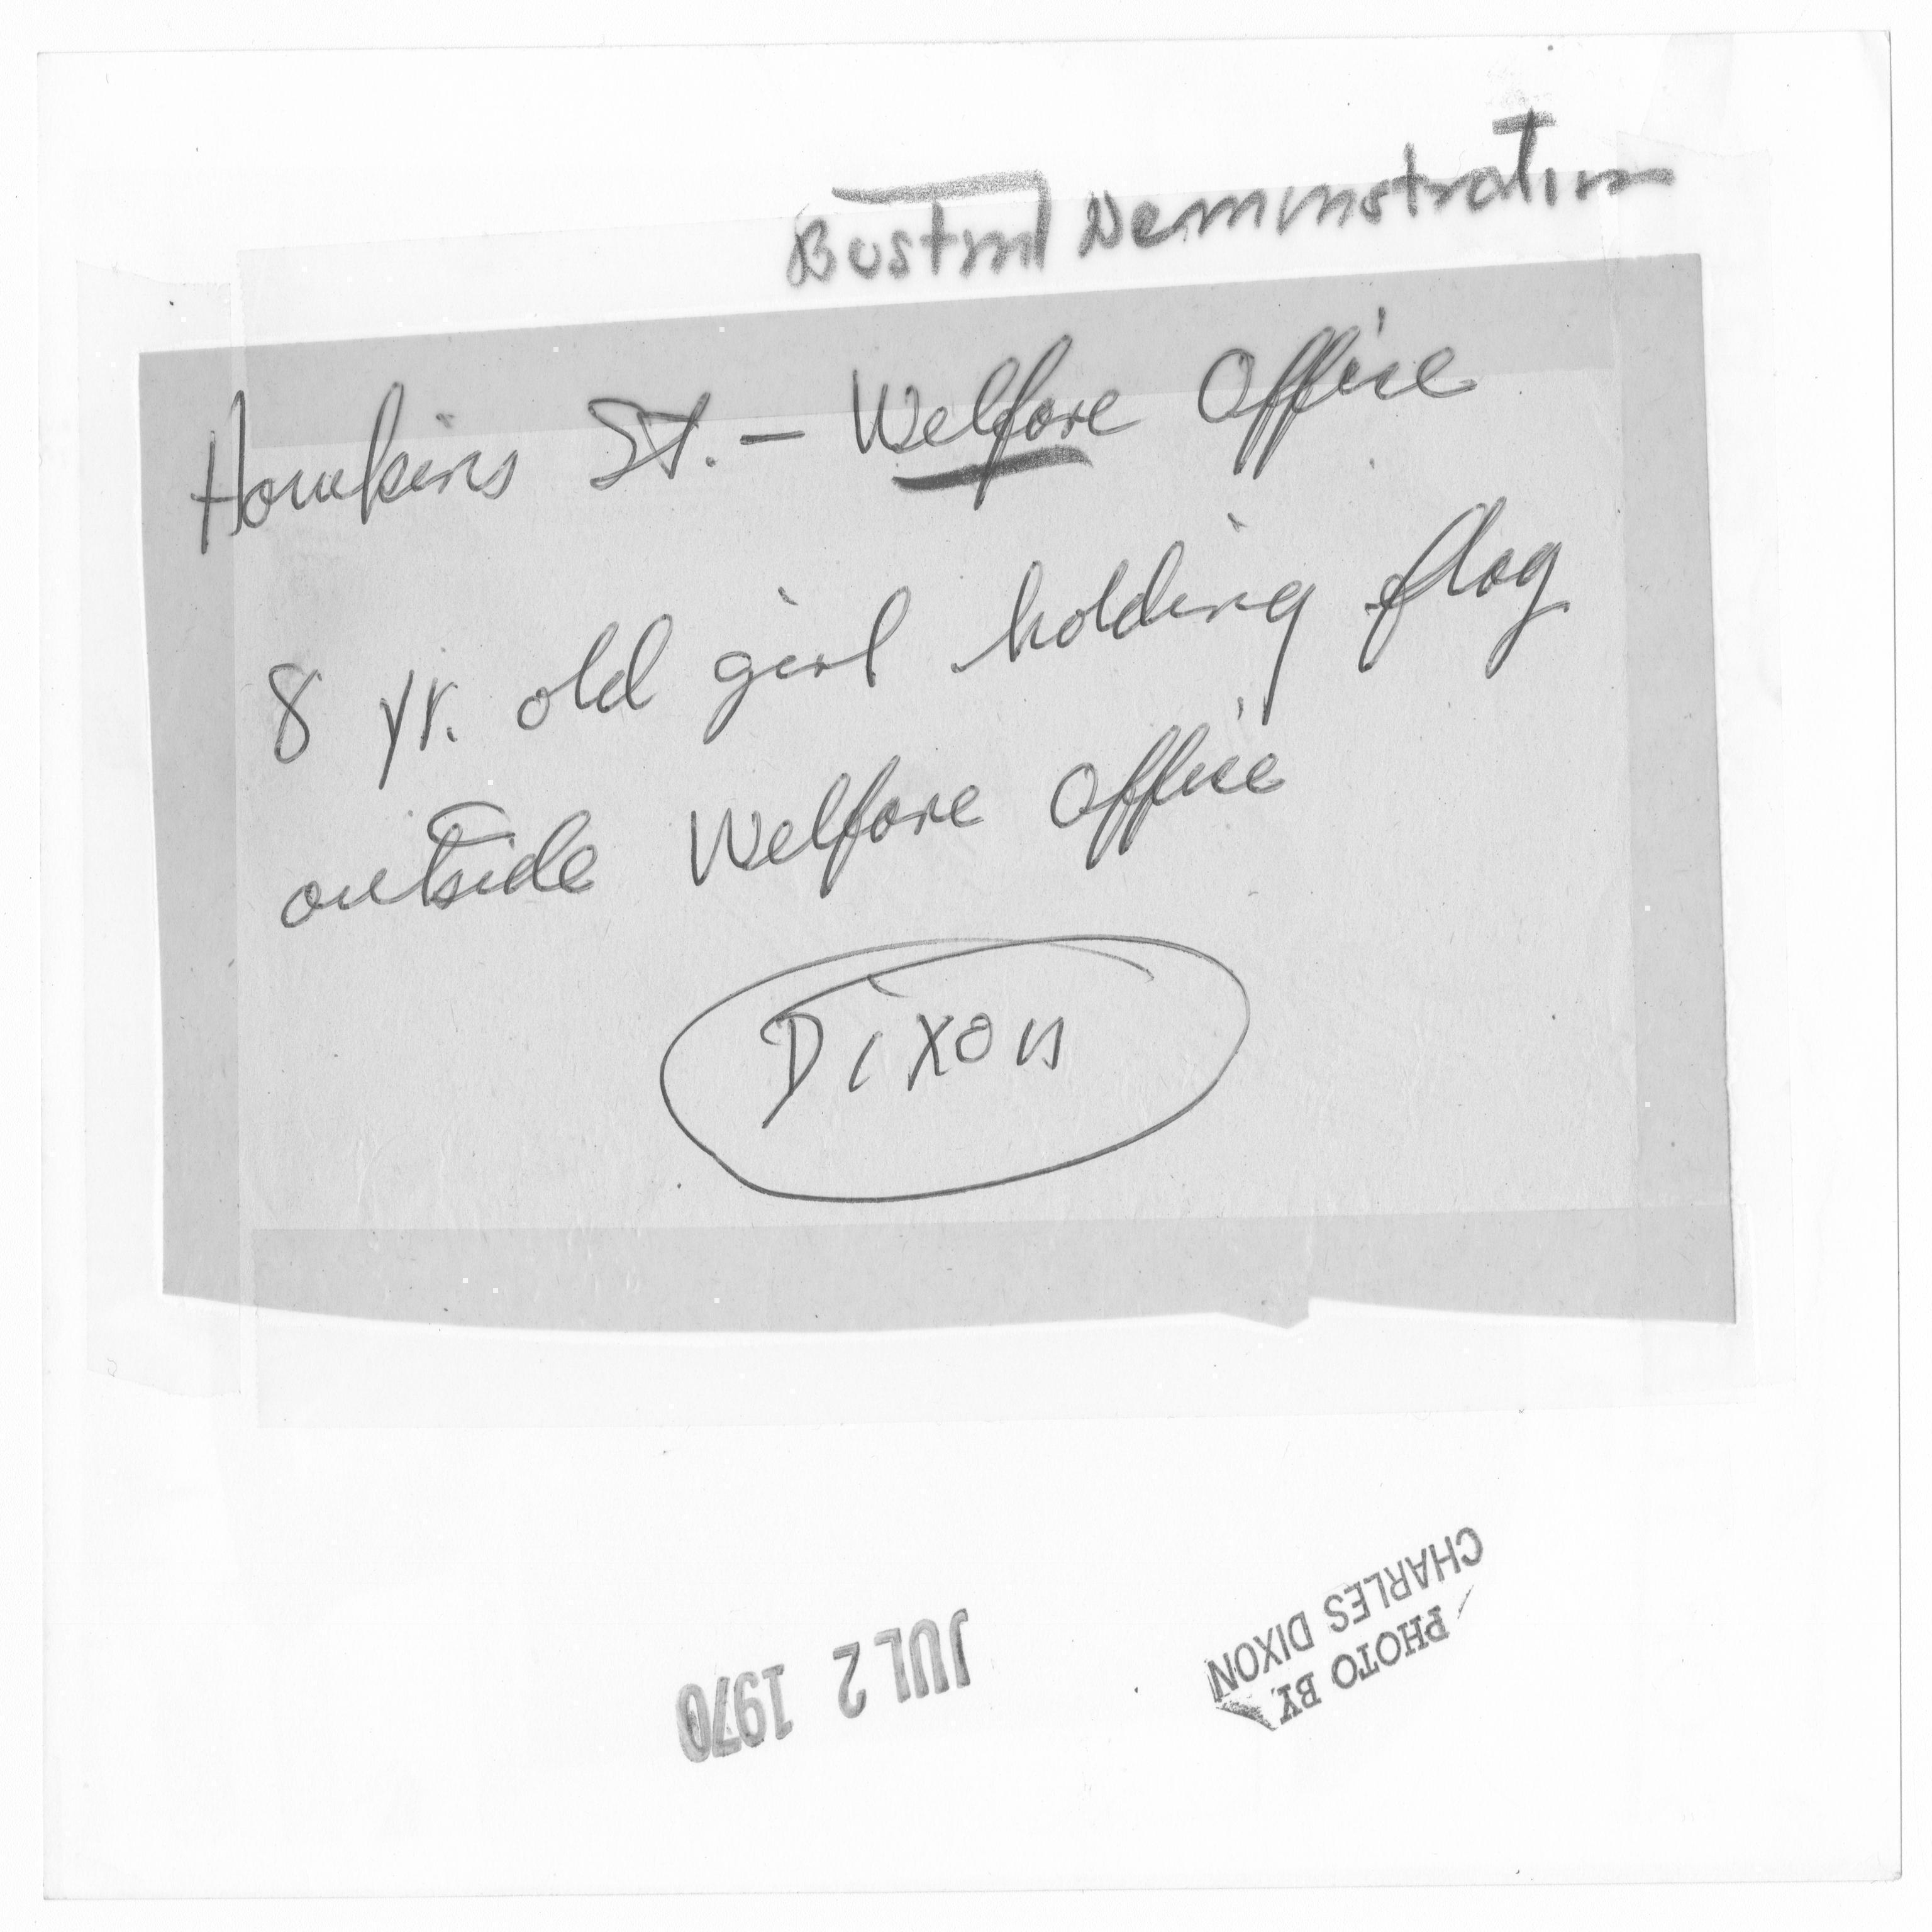 Boston Demonstration
Hawkins St. - Welfare Office
8 yr. old girl holding flag
outside Welfare Office
Dixon
JUL 2 1970
PHOTO BY
CHARLES DIXON